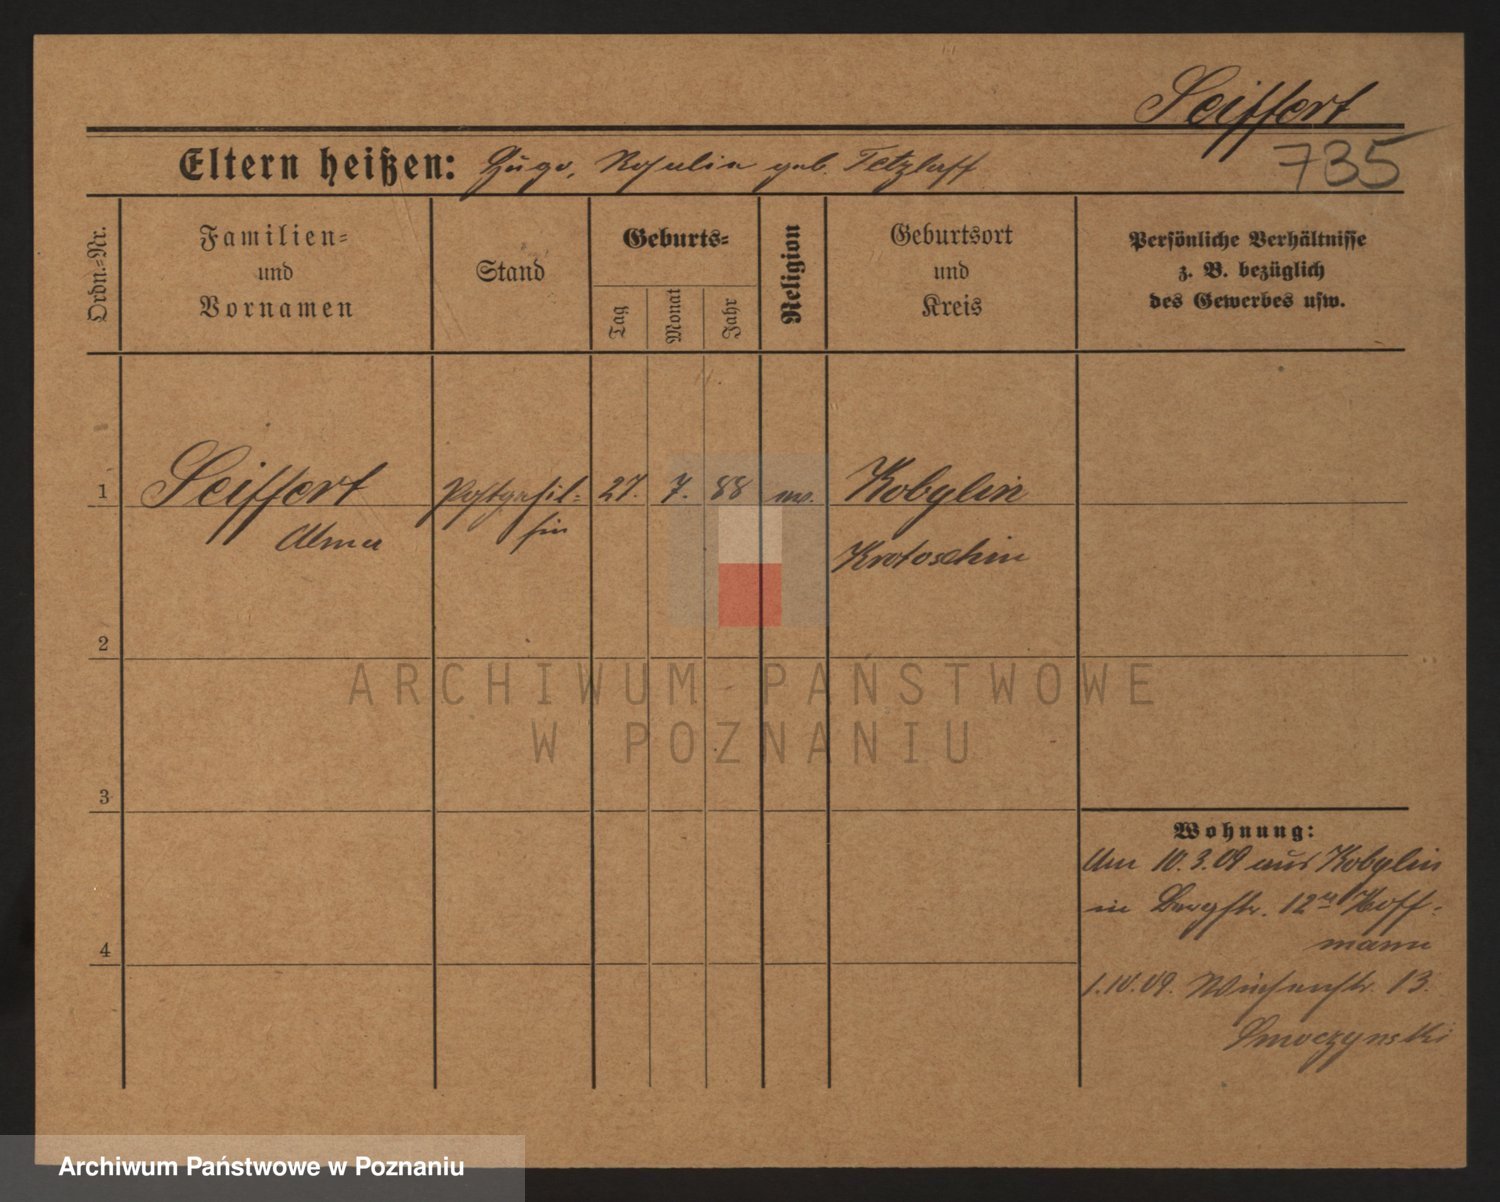 Seiffert
Eltern heißen: Hugo, Rosalie geb. Tetzlaff
735
Ordn.=Nr.
Familien=
und
Vornamen
Stand
Geburts=
Tag
Monat
Jahr
Religion
Geburtsort
und
Kreis
Persönliche Verhältnisse
z. B. bezüglich
des Gewerbes usw.
1 Seiffert Postgehil= 27. 7. 88 ev. Kobylin
Alma fin Krotoschin
2
3
4
Wohnung:
Am 10.3.09 aus Kobylin
in Bergstr. 12 Hoff=
mann
1.10.09. Wiesenstr. 13.
Smoczynski
ARCHIWUM PAŃSTWOWE
W POZNANIU
Archiwum Państwowe w Poznaniu